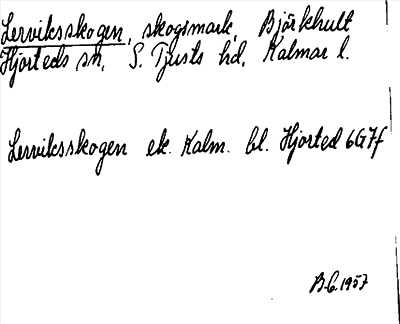 Lerviksskogen, skogsmark, Björkhult
Hjorteds sn, S. Tjusts hd, Kalmar l.
Lerviksskogen ek. Kalm. bl. Hjorted 6G7f
1957